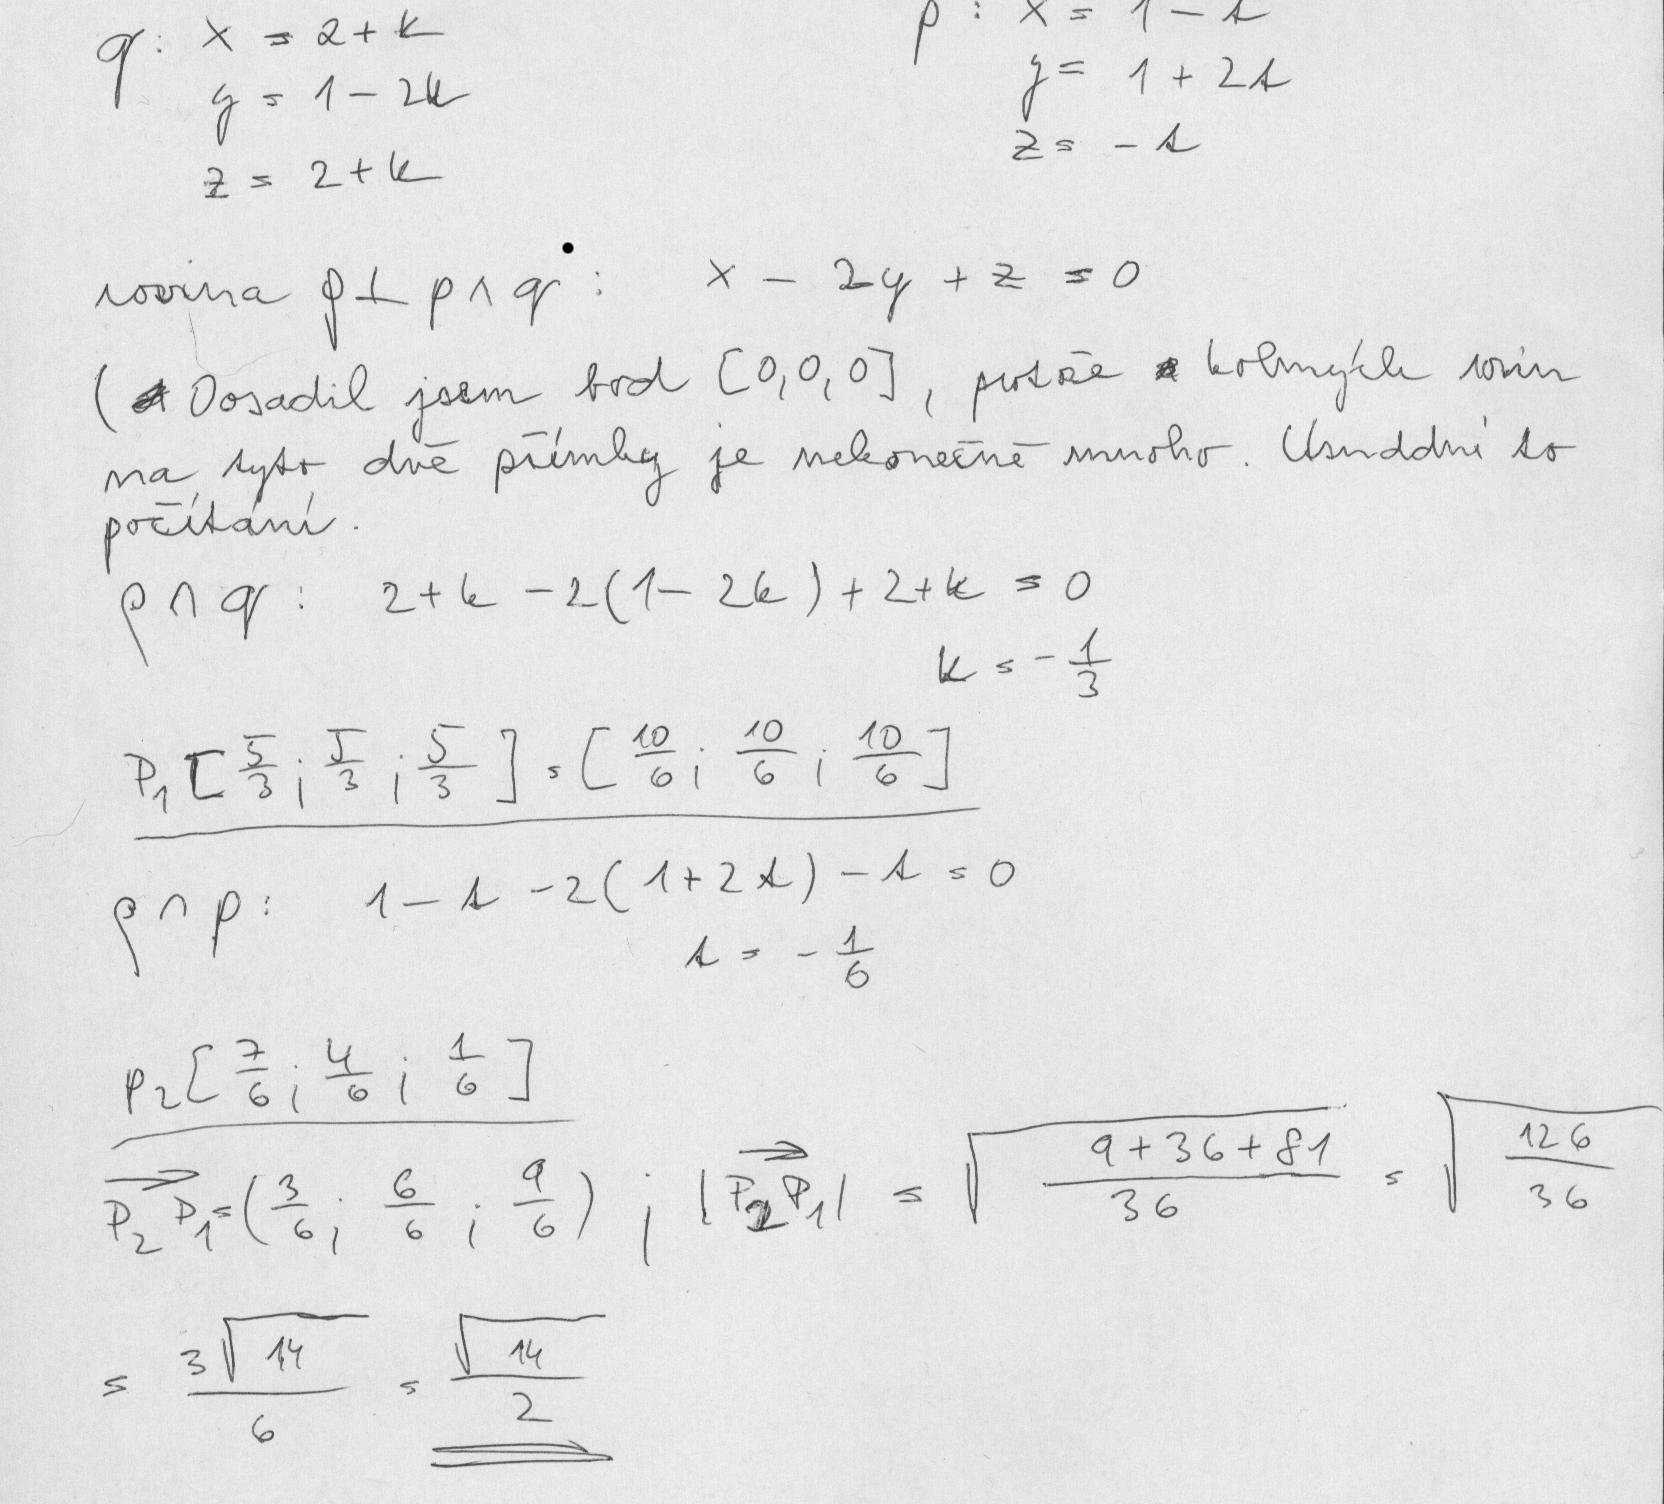 q: x = 2 + k
p: x = 1 - t
y = 1 - 2k
y = 1 + 2t
z = 2 + k
z = - t
rovina ρ ⊥ p ∧ q : x - 2y + z = 0
( Dosadil jsem bod [0,0,0], protože kolmých rovin
na tyto dvě přímky je nekonečně mnoho. Usnddní to
počítání.
ρ ∩ q : 2 + k - 2(1 - 2k) + 2 + k = 0
k = - 1/3
P₁ [5/3 ; 5/3 ; 5/3] = [10/6 ; 10/6 ; 10/6]
ρ ∩ p : 1 - t - 2(1 + 2t) - t = 0
t = - 1/6
P₂ [7/6 ; 4/6 ; 1/6]
P₂P₁ = (3/6 ; 6/6 ; 9/6) ; |P₂P₁| = √((9+36+81)/36) = √(126/36)
= 3√14/6 = √14/2